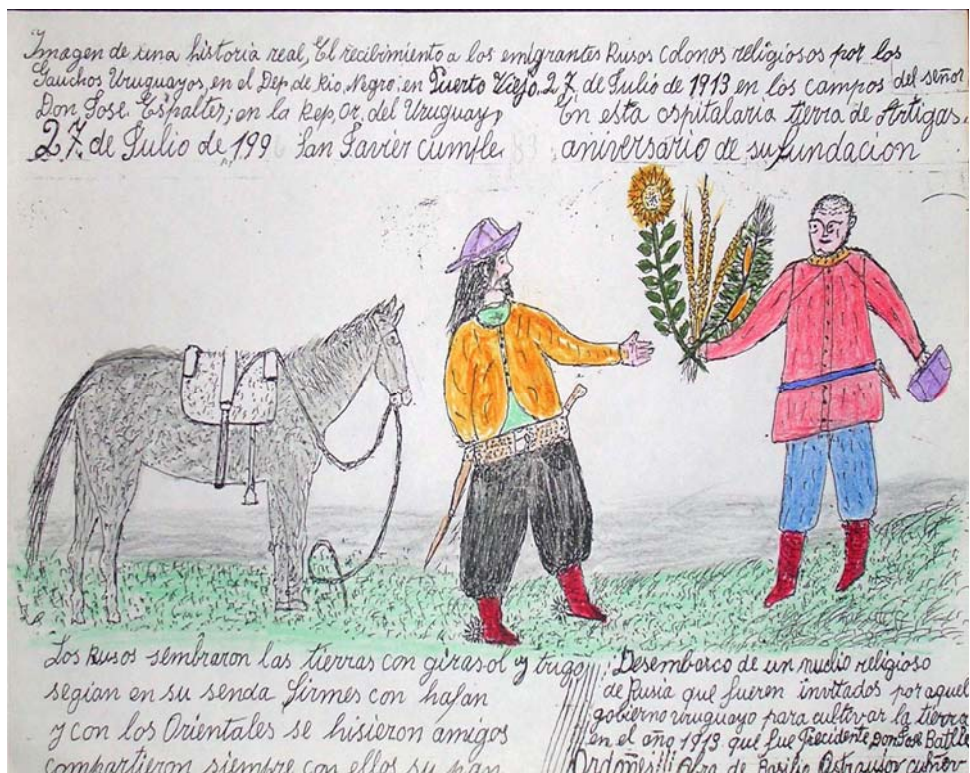 Imagen de una historia real, El recibimiento a los emigrantes Rusos colonos religiosos por los
Gauchos Uruguayos, en el Dep. de Rio, Negro; en Puerto Viejo, 27, de Julio de 1913 en los campos del señor
Don, Jose. Espalter; en la Rep, Or, del Uruguay, En esta ospitalaria tierra de Artigas.
27. de Julio de 199 San Javier cumple aniversario de su fundacion
Los Rusos sembraron las tierras con girasol y trigo
segian en su senda firmes con
y con los Orientales se hisieron amigos
compartieron siempre con ellos su pan
Desembarco de un religioso
de Rusia que fueren invitados por aquel
gobierno uruguayo para cultivar la tierra
en el año 1913 que fue Precidente Don Jose Batlle
Ordoñes Obra de Basilio